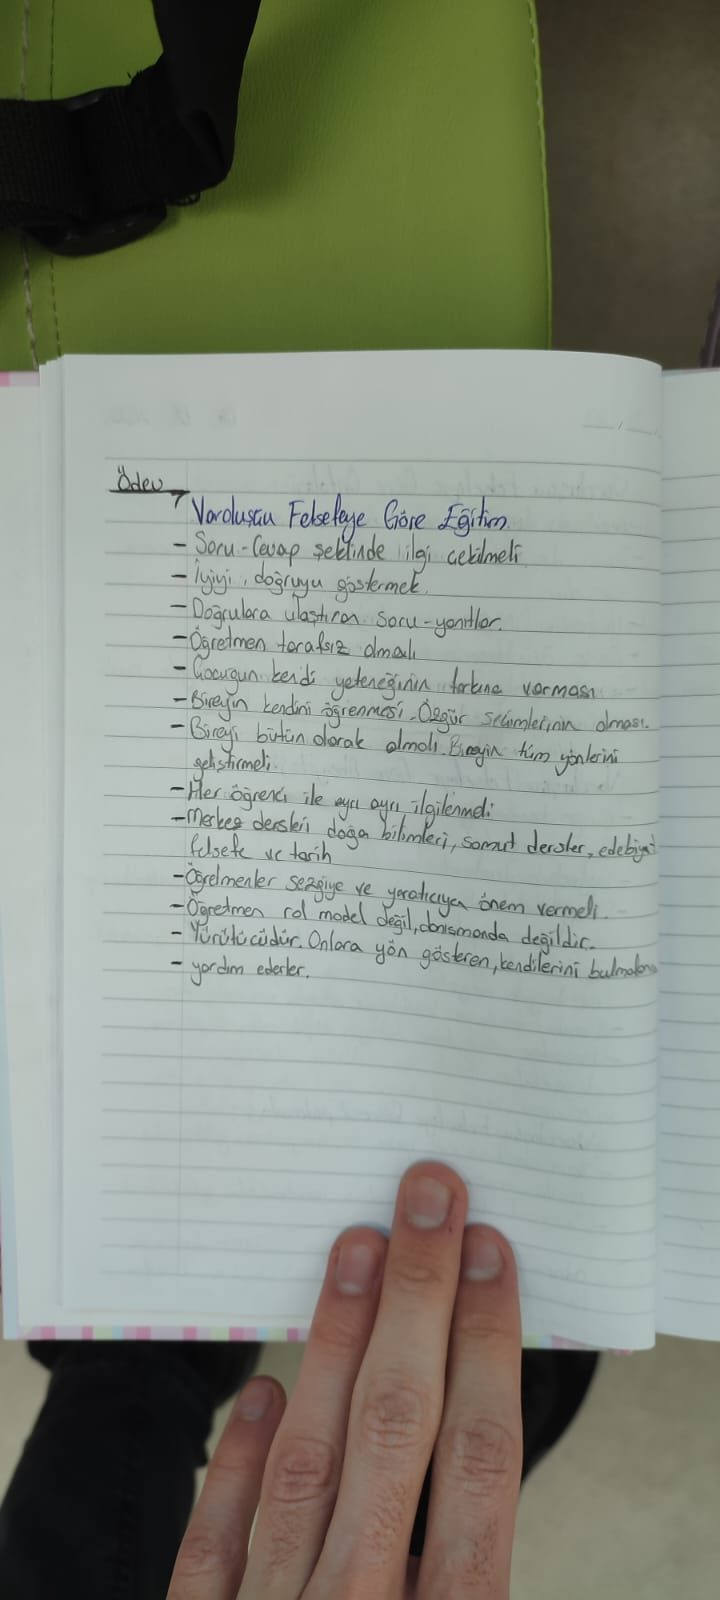 Ödev
Varoluşcu Felsefeye Göre Eğitim
- Soru-Cevap şeklinde ilgi çekilmeli
- İyiyi, doğruyu göstermek.
- Doğrulara ulaştıran soru-yanıtlar.
- Öğretmen tarafsız olmalı
- Çocuğun kendi yeteneğinin farkına varması
- Bireyin kendini öğrenmesi. Özgür seçimlerinin olması.
- Bireyi bütün olarak almalı. Bireyin tüm yönlerini
geliştirmeli.
- Her öğrenci ile ayrı ayrı ilgilenmeli
- Merkez dersleri doğa bilimleri, somut dersler, edebiyat
felsefe ve tarih
- Öğretmenler sezgiye ve yaratıcıya önem vermeli.
- Öğretmen rol model değil, danısmanda değildir.
- Yürütücüdür. Onlara yön gösteren, kendilerini bulmalarına
- yardım ederler.